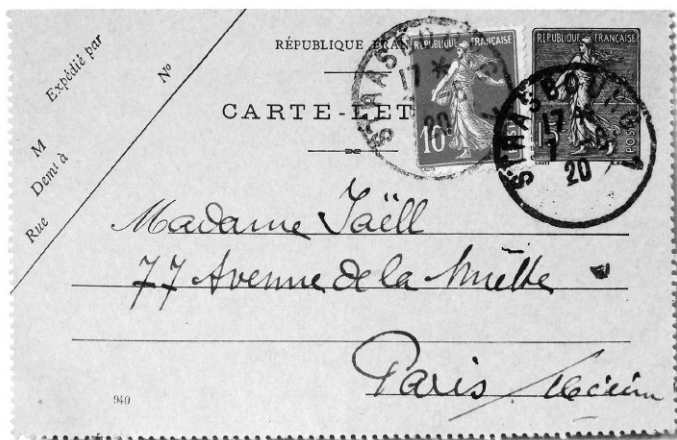 Expédié par
M
Demt à
Rue
No
RÉPUBLIQUE FRAN
CARTE-LET
RÉPUBLIQUE FRANÇAISE
10
POSTES
RÉPUBLIQUE FRANÇAISE
15
POSTES
STRASBOURG
17 *
20
STRASBOURG
17
7
20
Madame Jaëll
77 Avenue de la Muette
Paris
940